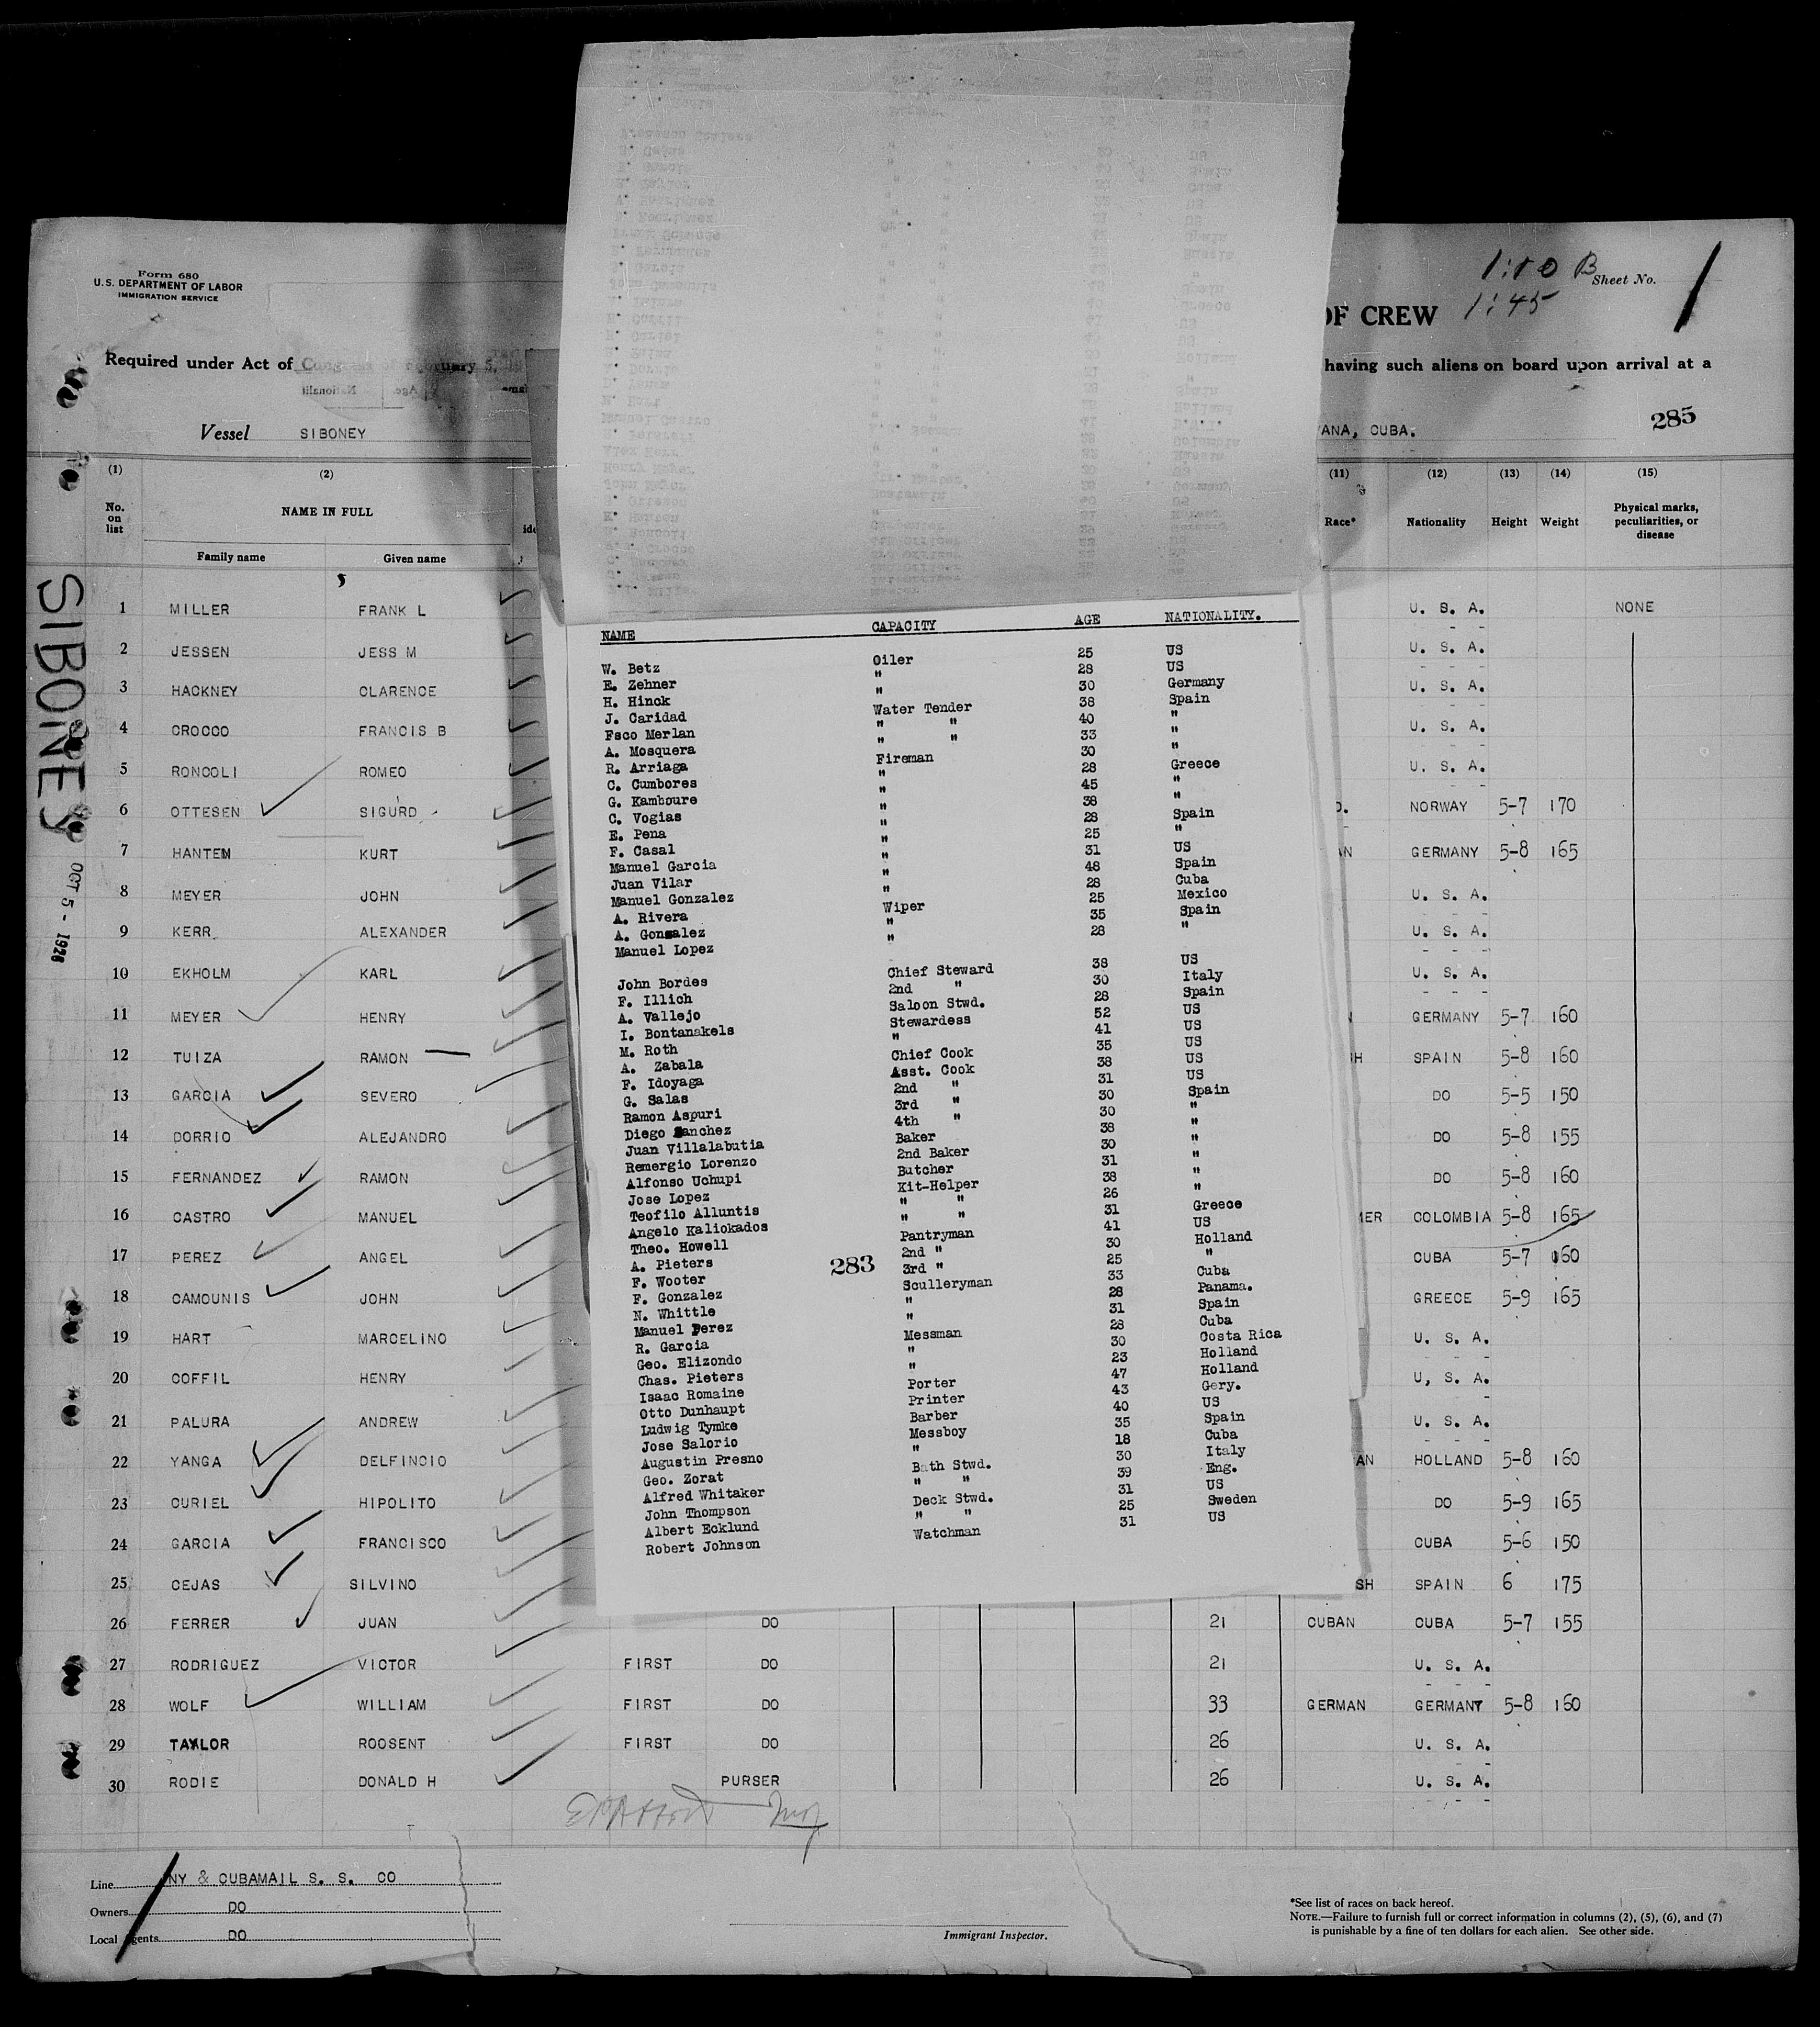 Form 680
U.S. DEPARTMENT OF LABOR
IMMIGRATION SERVICE
1:10 B
Sheet No. 1
1:45
OF CREW
Required under Act of Congress of February 5,
having such aliens on board upon arrival at a
Vessel SIBONEY
ANA, CUBA.
285
(1) (2) (11) (12) (13) (14) (15)
No. on list NAME IN FULL Race* Nationality Height Weight Physical marks, peculiarities, or disease
Family name Given name
SIBONEY
OCT 5 - 1928
1 MILLER FRANK L U. S. A. NONE
2 JESSEN JESS M U. S. A.
3 HACKNEY CLARENCE U. S. A.
4 CROCCO FRANCIS B U. S. A.
5 RONCOLI ROMEO U. S. A.
6 OTTESEN SIGURD NORWAY 5-7 170
7 HANTEN KURT GERMANY 5-8 165
8 MEYER JOHN U. S. A.
9 KERR ALEXANDER U. S. A.
10 EKHOLM KARL U. S. A.
11 MEYER HENRY GERMANY 5-7 160
12 TUIZA RAMON SPAIN 5-8 160
13 GARCIA SEVERO DO 5-5 150
14 DORRIO ALEJANDRO DO 5-8 155
15 FERNANDEZ RAMON DO 5-8 160
16 CASTRO MANUEL COLOMBIA 5-8 165
17 PEREZ ANGEL CUBA 5-7 160
18 CAMOUNIS JOHN GREECE 5-9 165
19 HART MARCELINO U. S. A.
20 COFFIL HENRY U, S. A.
21 PALURA ANDREW U. S. A.
22 YANGA DELFINCIO HOLLAND 5-8 160
23 CURIEL HIPOLITO DO 5-9 165
24 GARCIA FRANCISCO CUBA 5-6 150
25 CEJAS SILVINO SPAIN 6 175
26 FERRER JUAN DO 21 CUBAN CUBA 5-7 155
27 RODRIGUEZ VICTOR FIRST DO 21 U. S. A.
28 WOLF WILLIAM FIRST DO 33 GERMAN GERMANY 5-8 160
29 TAYLOR ROOSENT FIRST DO 26 U. S. A.
30 RODIE DONALD H PURSER 26 U. S. A.
NAME CAPACITY AGE NATIONALITY.
W. Betz Oiler 25 US
E. Zehner " 28 US
H. Hinck " 30 Germany
J. Caridad Water Tender 38 Spain
Fsco Merlan " " 40 "
A. Mosquera " " 33 "
R. Arriaga Fireman 30 "
C. Cumbores " 28 Greece
G. Kamboure " 45 "
C. Vogias " 38 "
E. Pena " 28 Spain
F. Casal " 25 "
Manuel Garcia " 31 US
Juan Vilar " 48 Spain
Manuel Gonzalez " 28 Cuba
A. Rivera Wiper 25 Mexico
A. Gonzalez " 35 Spain
Manuel Lopez " 28 "
John Bordes Chief Steward 38 US
F. Illich 2nd " 30 Italy
A. Vallejo Saloon Stwd. 28 Spain
I. Bontanakels Stewardess 52 US
M. Roth " 41 US
A. Zabala Chief Cook 35 US
F. Idoyaga Asst. Cook 38 US
G. Salas 2nd " 31 US
Ramon Aspuri 3rd " 30 Spain
Diego Sanchez 4th " 30 "
Juan Villalabutia Baker 38 "
Remergio Lorenzo 2nd Baker 30 "
Alfonso Uchupi Butcher 31 "
Jose Lopez Kit-Helper 38 "
Teofilo Alluntis " " 26 "
Angelo Kaliokados " " 31 Greece
Theo. Howell Pantryman 41 US
A. Pieters 2nd " 30 Holland
F. Wooter 3rd " 25 "
283
F. Gonzalez Sculleryman 33 Cuba
N. Whittle " 28 Panama.
Manuel Perez " 31 Spain
R. Garcia Messman 28 Cuba
Geo. Elizondo " 30 Costa Rica
Chas. Pieters " 23 Holland
Isaac Romaine Porter 47 Holland
Otto Dunhaupt Printer 43 Gery.
Ludwig Tymke Barber 40 US
Jose Salorio Messboy 35 Spain
Augustin Presno " 18 Cuba
Geo. Zorat Bath Stwd. 30 Italy
Alfred Whitaker " " 39 Eng.
John Thompson Deck Stwd. 31 US
Albert Ecklund " " 25 Sweden
Robert Johnson Watchman 31 US
Line NY & CUBAMAIL S. S. CO
Owners DO
Local Agents DO
Immigrant Inspector.
*See list of races on back hereof.
NOTE.—Failure to furnish full or correct information in columns (2), (5), (6), and (7)
is punishable by a fine of ten dollars for each alien. See other side.